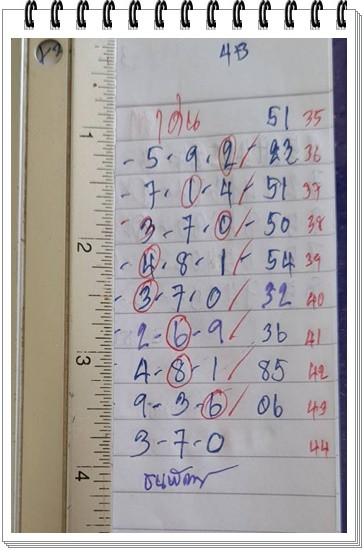 4B
เด่น 51 35
- 5 - 9 - 2 / - 22 36
- 7 - 1 - 4 / - 51 37
- 3 - 7 - 0 / - 50 38
- 4 - 8 - 1 / - 54 39
- 3 - 7 - 0 / 32 40
- 2 - 6 - 9 / 36 41
4 - 8 - 1 / 85 42
9 - 3 - 6 / 06 43
3 - 7 - 0 44
1
2
3
4